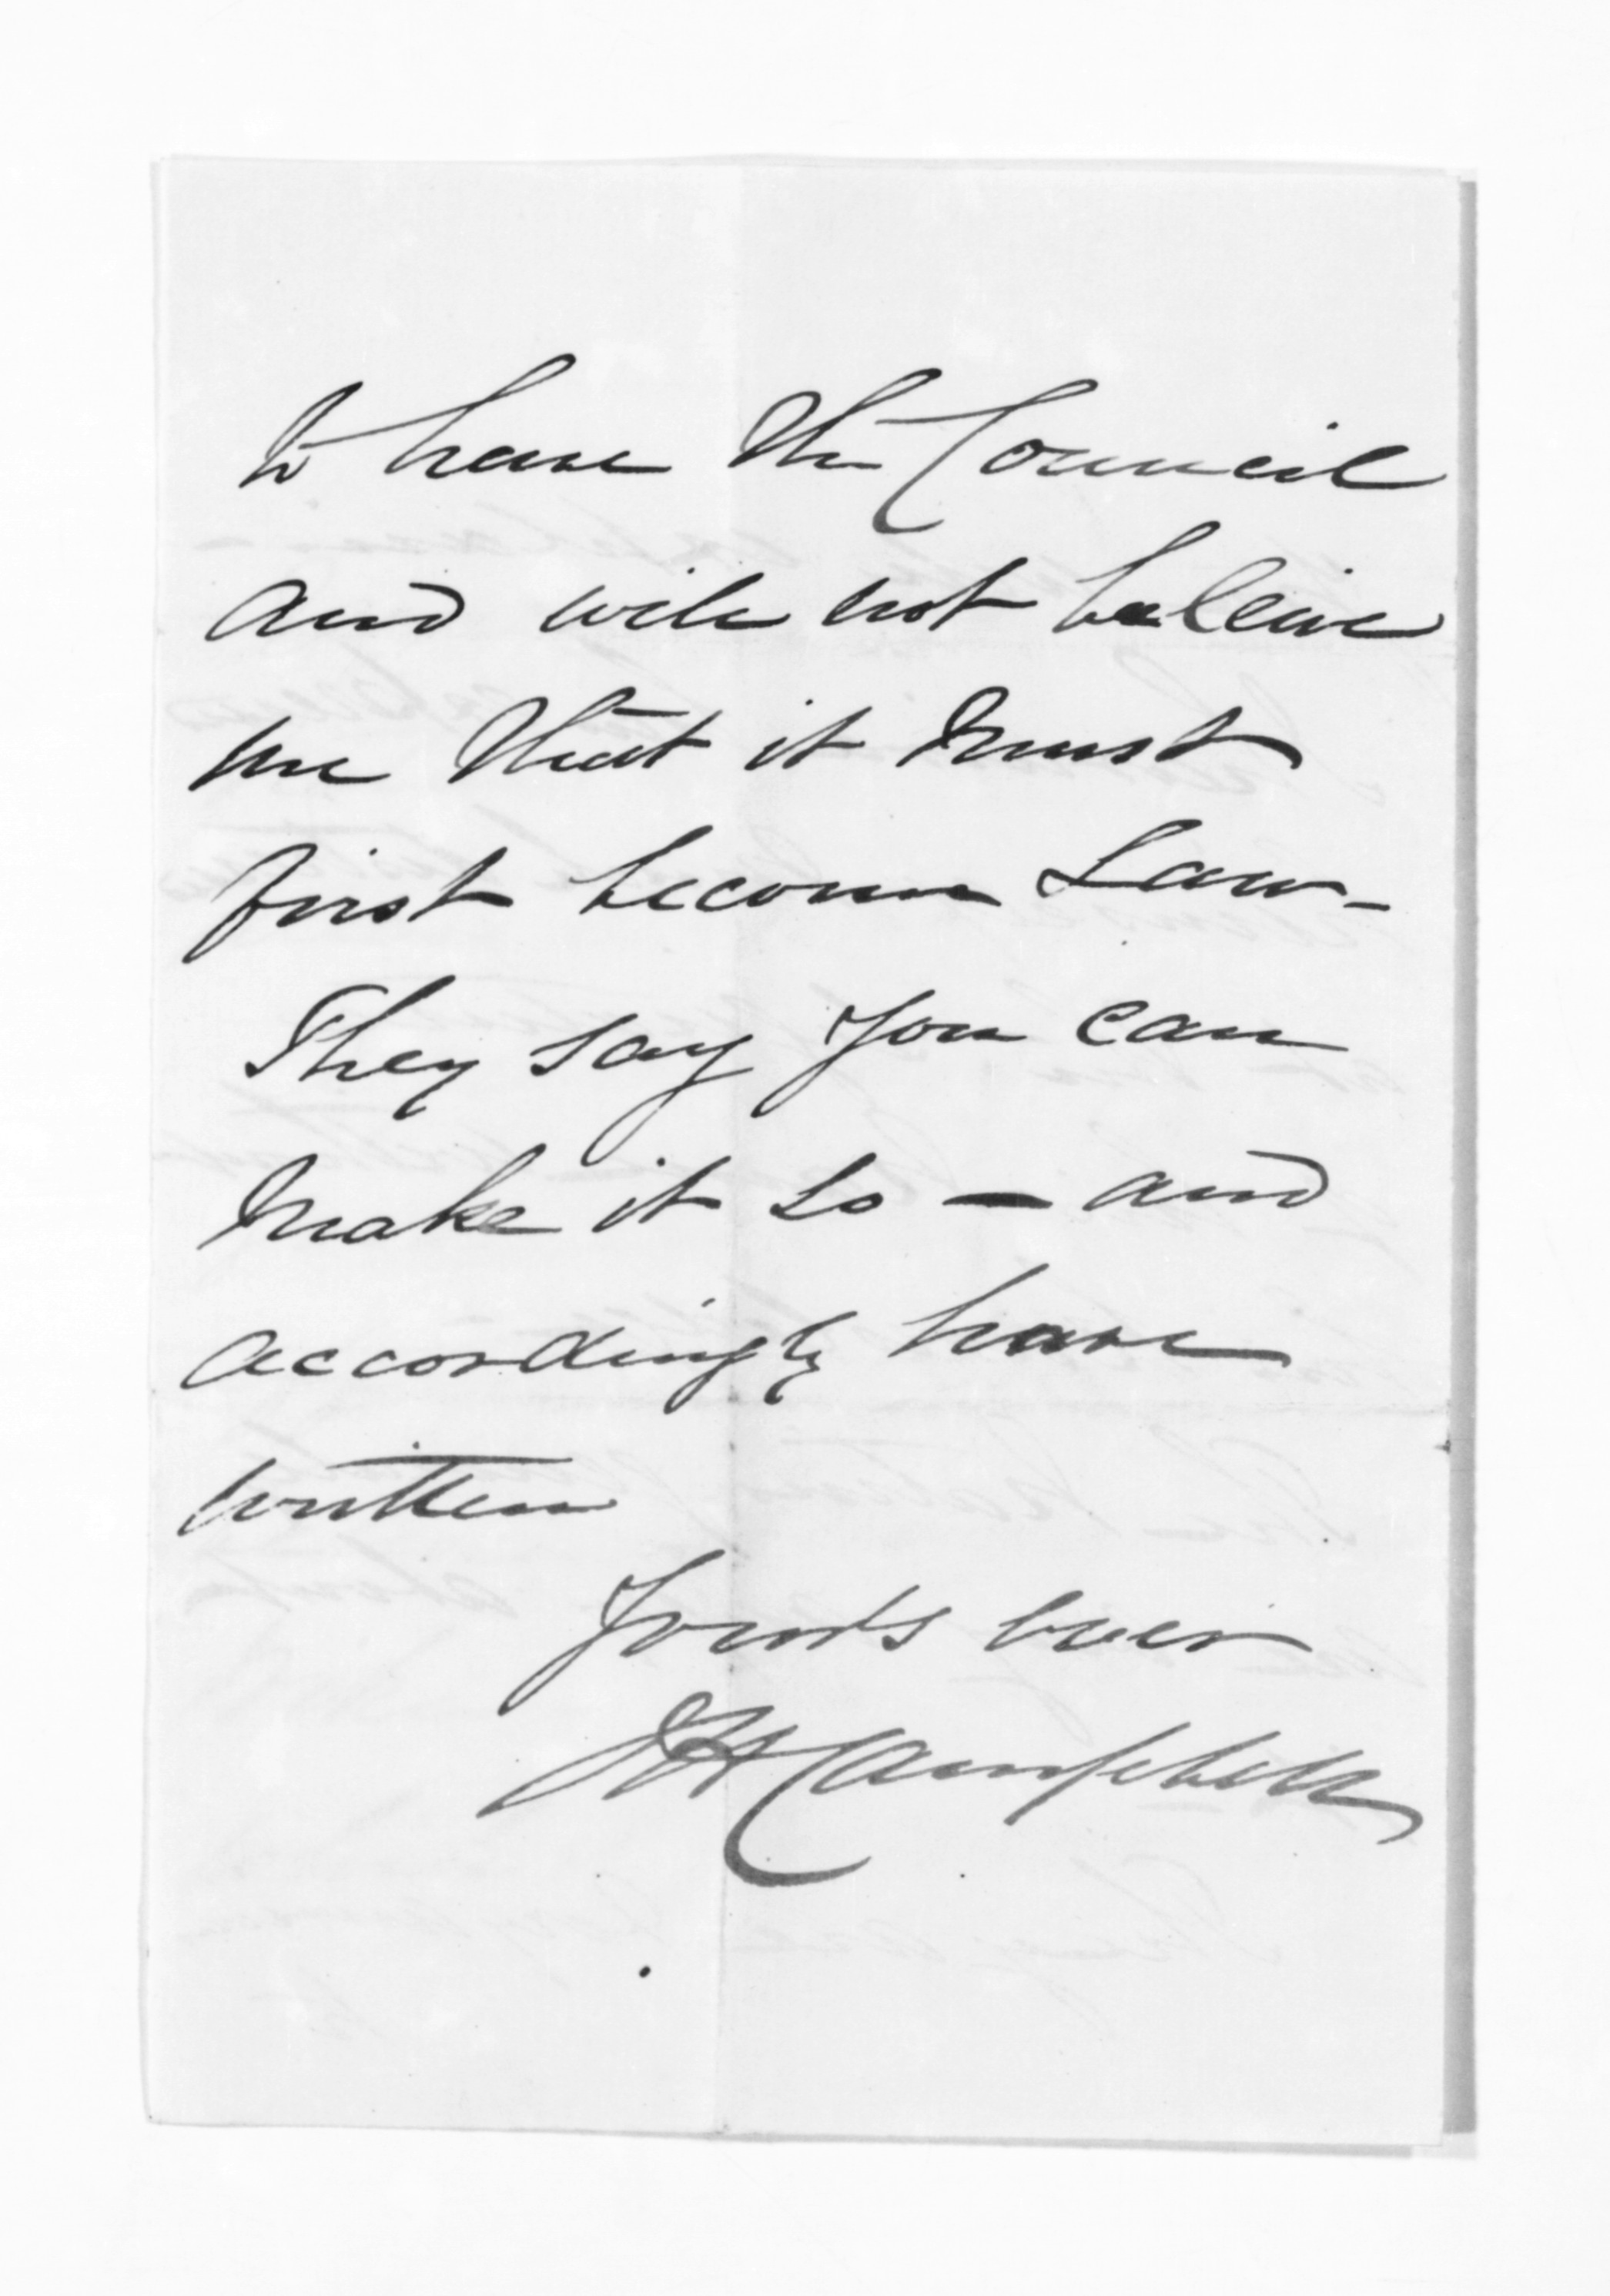 to have the Council
and will not beleive
me that it must
first become Law -
They say you can
make it so - and
accordingly have
written
Yours ever
Campbell